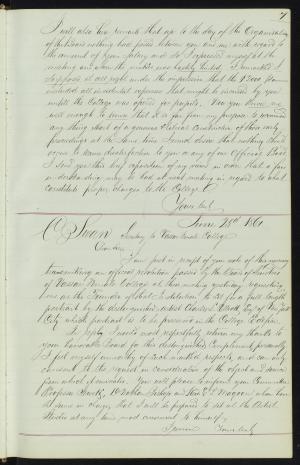 7
I will also here remark that up to the day of the Organization
of the Board nothing had passed between you and me with regard to
the amount of your salary and so I expressed myself at the
meeting and when the matter was hastily I remarked I
supposed it all right under the impression that the $2000 for
included all incidental expenses that might be incurred by you
untill the College was opened for pupils. Now you know me
well enough to know that it is far from my purpose to
any thing short of a generous & liberal construction of those early
proceedings at the same time I would desire that nothing should
occur to cause dissatisfaction to you or any of our Official Board
I send you this brief of my views in order that a fair
understanding may be had at next meeting in regard to what
constitute proper charges to the College
Yours truly
June 28th 1861
C Swan
Secretary to Vassar Female College
Dear Sir
I am just in receipt of your note of this morning
transmitting an official resolution passed by the Board of Trustees
of Vassar Female College at their meeting yesterday requesting
me as the Founder of that Institution to sit for a full length
portrait by the distinguished artist Charles L Elliott Esq of New York
City which portrait is to be preserved in the College Edifice.
In reply I would most respectfully return my thanks to
your honorable Board for this distinguished Compliment personally
I feel myself unworthy of such marked respect, and can only
consent to the request in consideration of the object and source
from which it emanates. You will please to inform your Committee
Bishop and
the same in charge that I will be prepared to sit at the Artist
Studio at any time most convenient to himself
Yours truly